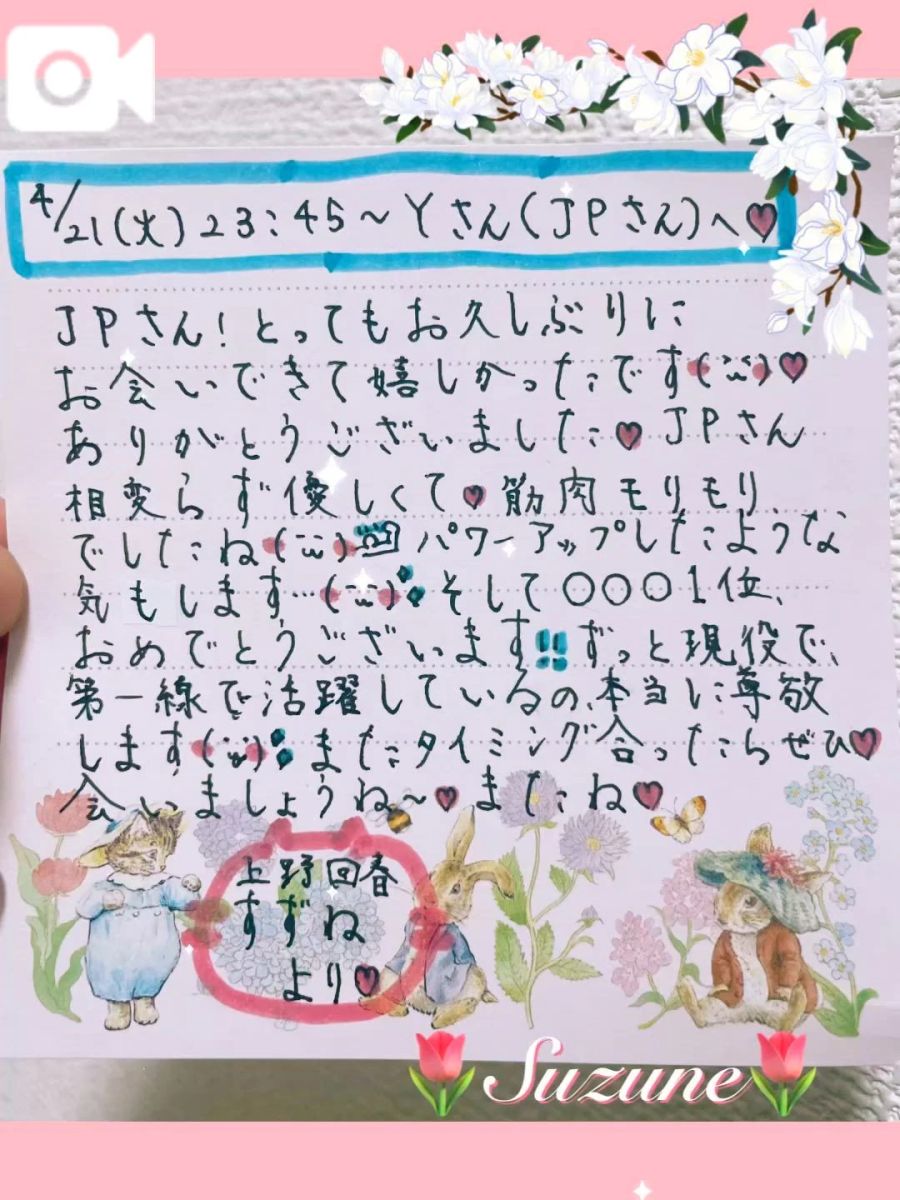 4/21(火)23:45〜Yさん(JPさん)へ♥
JPさん!とってもお久しぶりに
お会いできて嬉しかったです♥
ありがとうございました♥JPさん
相変らず優しくて♥筋肉モリモリ
でしたね パワーアップしたような
気もします…そして〇〇〇1位、
おめでとうございます!!ずっと現役で、
第一線で活躍しているの、本当に尊敬
します またタイミング合ったらぜひ♥
会いましょうね〜♥またね♥
上野回春
すずね
より♥
Suzune